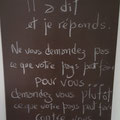 Il a dit
et je réponds.
Ne vous demandez pas
ce que votre pays peut faire
pour vous...
demandez vous plutôt
ce que votre pays peut faire
contre vous